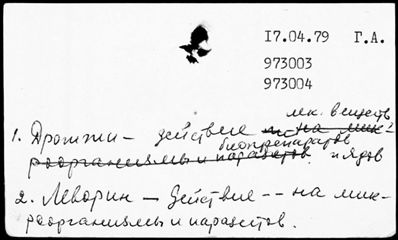 17.04.79 Г.А.
973003
973004
лек. веществ
1. Дрожжи — действие на мик-
биопрепаратов
роорганизмы и паразитов. и ядов
2. Леворин — Действие -- на мик-
роорганизмы и паразитов.